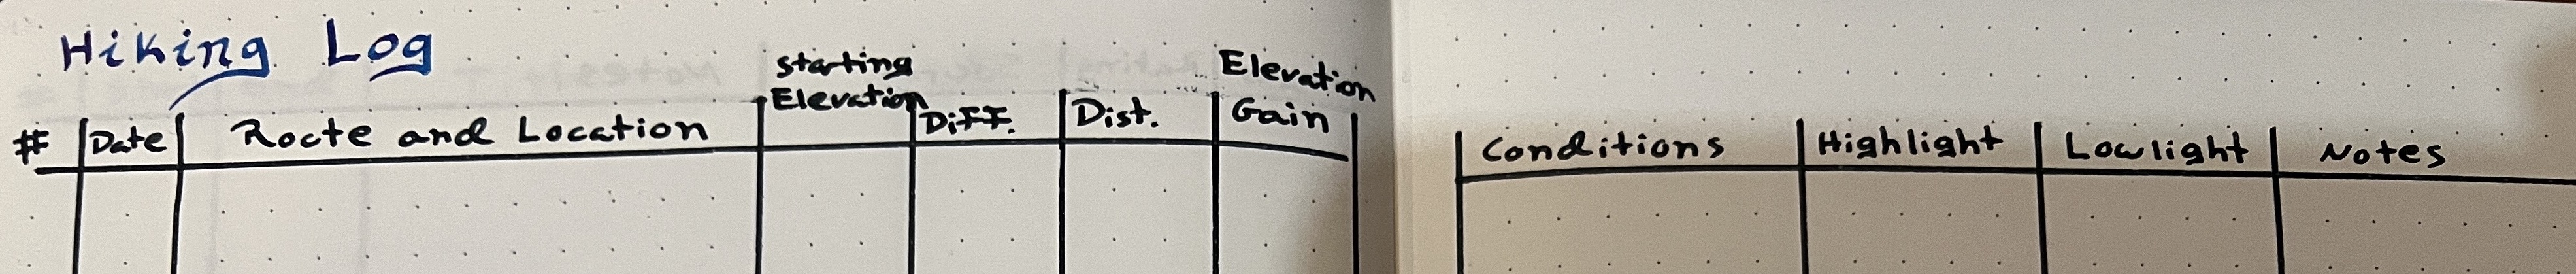 Hiking Log
# Date Rocte and Location Starting Elevation Diff. Dist. Elevation Gain
Conditions Highlight Lowlight Notes